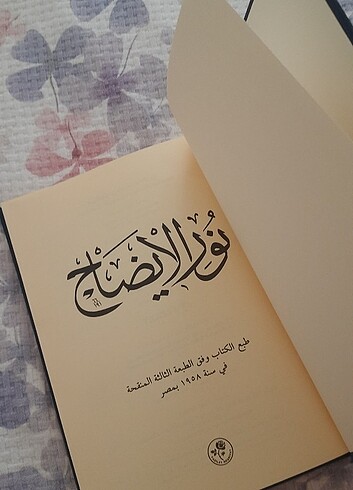 نُورُ الإيضَاح
طبع الكتاب وفق الطبعة الثالثة المنقحة
في سنة ١٩٥٨ بمصر